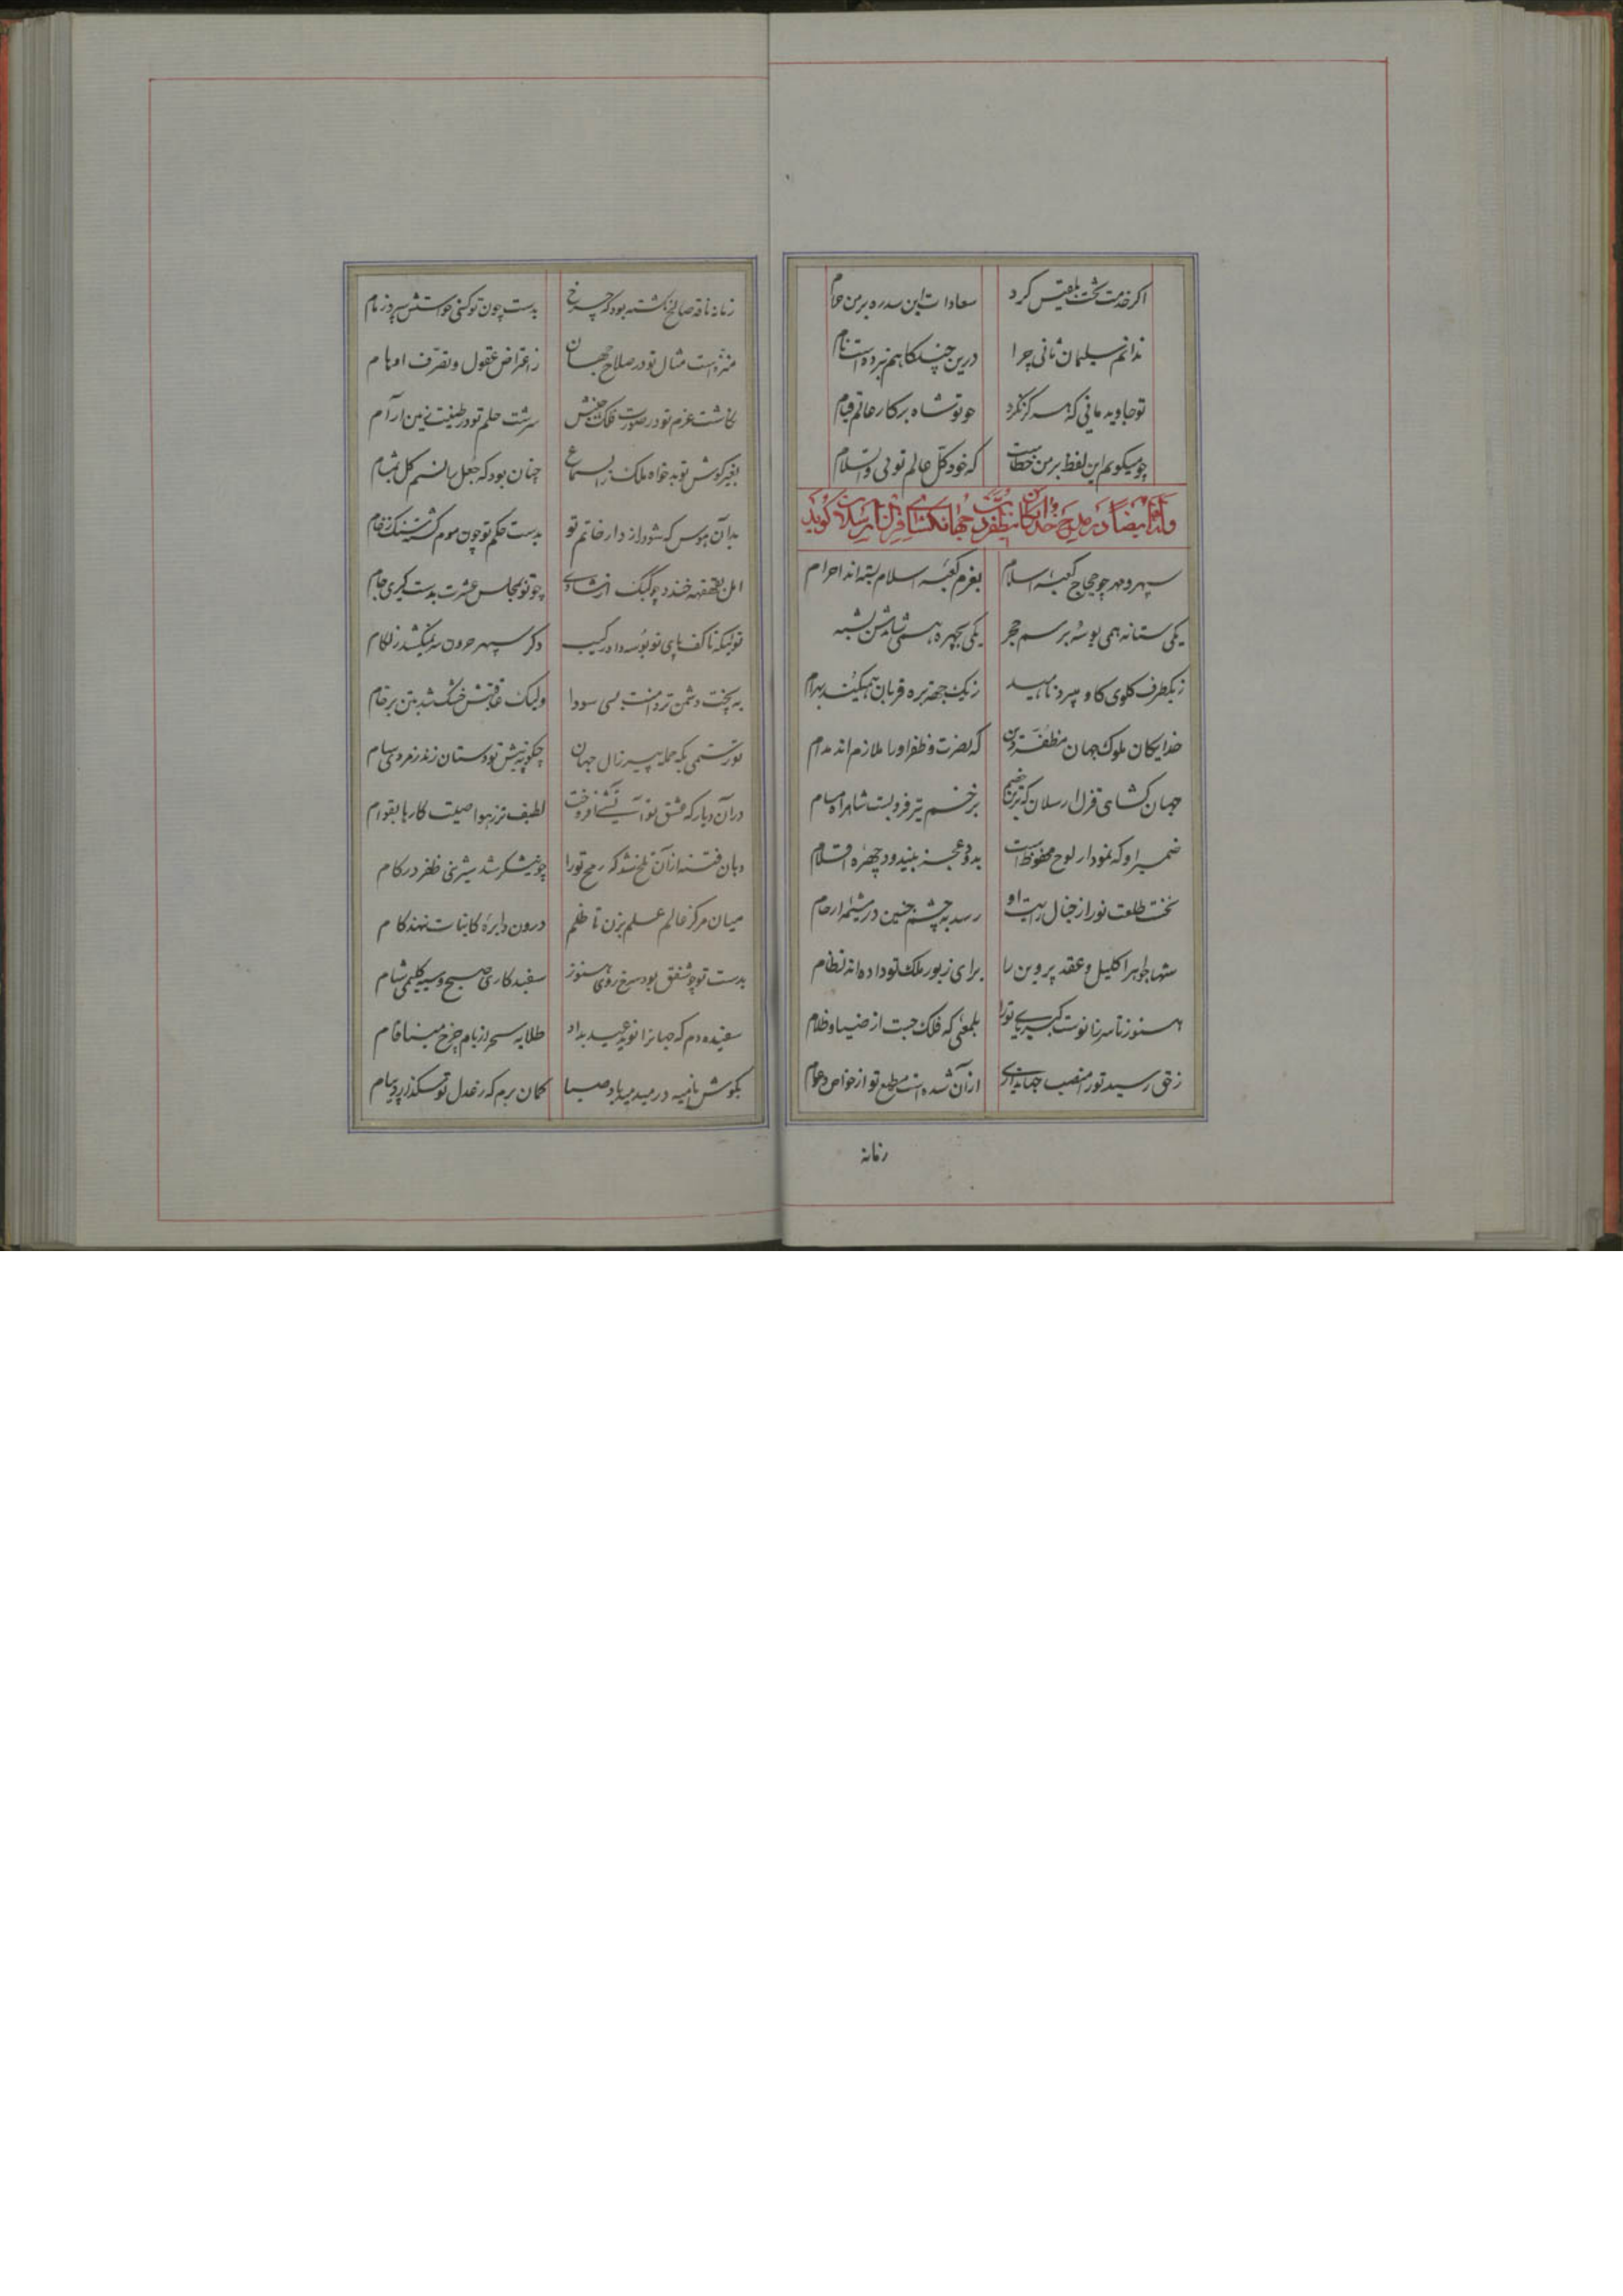 اگر خدمت تخت بلقیس کرد سعادات این سدره بر من حرام
ندانم سلیمان ثانی چرا درین چند گاهم نبرده است نام
تو جاوید مانی که هرگز نکرد چو تو شاه بر کار عالم قیام
چو میگویم این لفظ بر من خطاست که خود کل عالم توئی والسلام
وله ایضاً در مدیح خدایگان مظفرالدین جهانگشای قزل ارسلان گوید
سپهر و مهر چو حجاج کعبهٔ اسلام بعزم کعبهٔ اسلام بسته اند احرام
یکی ستانه همی بوسد بر سم حجر یکی بچهره
ز یکطرف گلوی گاو میبرد ناهید ز یک جهة بره قربان همیکند بهرام
خدایکان ملوک جهان مظفر دین که نصرت و ظفر او را ملازم اند مدام
جهان گشای قزل ارسلان که
ضمیر او که نمودار لوح محفوظ است بدو عجز ببیند ود چهرهٔ اقلام
نخست طلعت نور از خیال رایت او رسد به چشم جنین در مشیمهٔ ارحام
شها جواهر اکلیل و عقد پروین را برای زیور ملک تو داده اند نظام
هنوز تا سر زانوست کبریای تو را بلمعهٔ که فلک جست از ضیا و ظلام
ز حق رسید تو را منصب جهانداری از آن شده است مطیع تو از خواص و عوام
زمانه
زمانه ناقه صالح بکشته بود که چرخ بدست چون تو کسی خواستش سپرد زمام
منزه است مثال تو در صلاح جهان ز اعتراض عقول و تصرف اوهام
نگاشت عزم تو در صورت فلک جنبش سرشت حلم تو در طینت زمین آرام
بغیر گوش تو بدخواه ملک را ز سماع چنان بود که جعل را نسیم گل بمشام
بدآن هوس که شود از دار خاتم تو بدست حکم تو چون موم گشت سنگ رخام
امل بقهقهه خندد چو کبک از شادی چو تو بمجلس عشرت بدست گیری جام
تو لیکه تا کف پای تو بوسه داد رکیب دگر سپهر حرون سر نمیکشد ز لگام
به پخت دشمن تردامنت بسی سودا ولیک عاقبتش خشک شد بتن بر خام
تو رستمی بگه حمله پیر زال جهان چگونه پیش تو دستان زند ز مردی سام
در آن دیار که عشق تو آتشی افروخت لطیف تر ز هوا نیست کارها بقوام
دهان فتنه از آن تلخ شد که رمح تو را چو نیشکر شد شیرینی ظفر در کام
میان مرکز عالم علم بزن تا ظلم درون دایرهٔ کاینات ننهد گام
بدست تو چو شفق بود سرخ روی هنوز سفید کاری صبح و سیه گلیمی شام
سفیده دم که جهانرا نوید عید بداد طلایه سحر از بام چرخ مینا فام
بگوش نامیه در میدمید باد صبا گمان برم که ز عدل تو میگذارد پیام